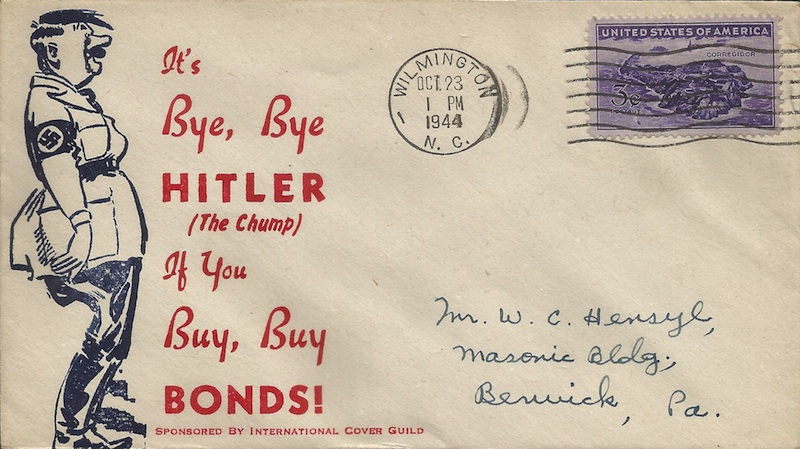 It's
Bye, Bye
HITLER
(The Chump)
If You
Buy, Buy
BONDS!
SPONSORED BY INTERNATIONAL COVER GUILD
WILMINGTON
OCT. 23
1 PM
1944
N. C.
UNITED STATES OF AMERICA
CORREGIDOR
3¢
Mr. W. C. Hensyl,
Masonic Bldg.,
Berwick, Pa.